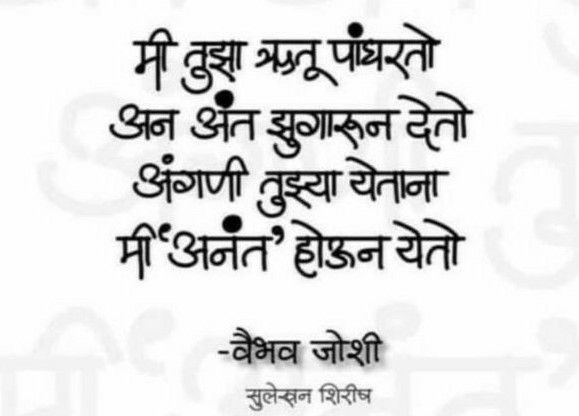 मी तुझा ऋतू पांघरतो
अन अंत झुगारून देतो
अंगणी तुझ्या येताना
मी 'अनंत' होऊन येतो
-वैभव जोशी
सुलेखन शिरीष